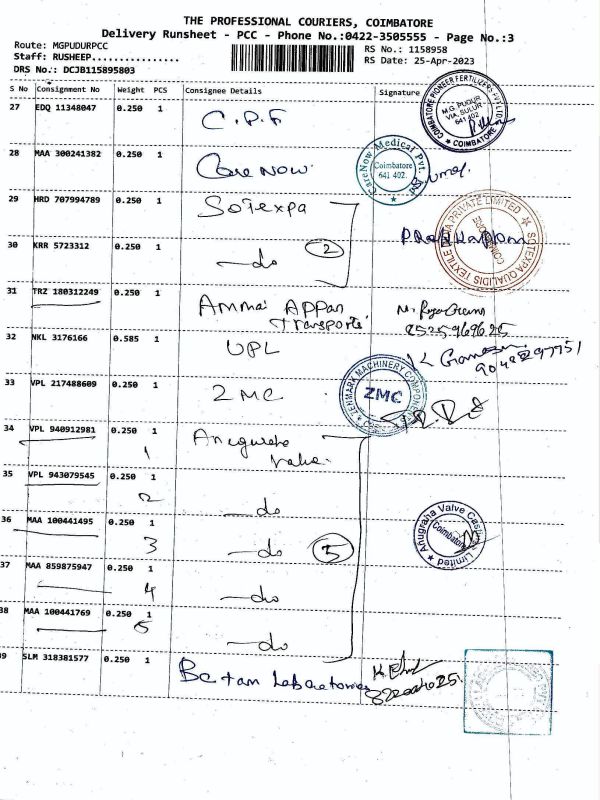 THE PROFESSIONAL COURIERS, COIMBATORE
Delivery Runsheet - PCC - Phone No.:0422-3505555 - Page No.:3
Route: MGPUDURPCC
RS No.: 1158958
Staff: RUSHEEP................
RS Date: 25-Apr-2023
DRS No.: DCJB115895803
S No Consignment No Weight PCS Consignee Details Signature
27 EDQ 11348047 0.250 1 C.P.F
COIMBATORE PIONEER FERTILIZERS PVT LTD
M.G. PUDUR
VIA. SULUR
641 402
COIMBATORE
28 MAA 300241382 0.250 1 Care Now.
CareNow Medical Pvt.
Coimbatore
641 402.
29 HRD 707994789 0.250 1 Sotexpa
30 KRR 5723312 0.250 1 —do 2
SOTEXPA QUALIDIS TEXTILE INDIA PRIVATE LIMITED
COIMBATORE
31 TRZ 180312249 0.250 1 Ammai Appan
Transports
8525969625
32 NKL 3176166 0.585 1 UPL
33 VPL 217488609 0.250 1 ZMC
LEHMARK MACHINERY COMPONENTS
ZMC
34 VPL 940912981 0.250 1 Anugraha
Valve
1
35 VPL 943079545 0.250 1 —do
2
36 MAA 100441495 0.250 1 —do 5
3
Anugraha Valve Castings Limited
Coimbatore
37 MAA 859875947 0.250 1 —do
4
38 MAA 100441769 0.250 1 —do
5
39 SLM 318381577 0.250 1 Bctam Laboratories